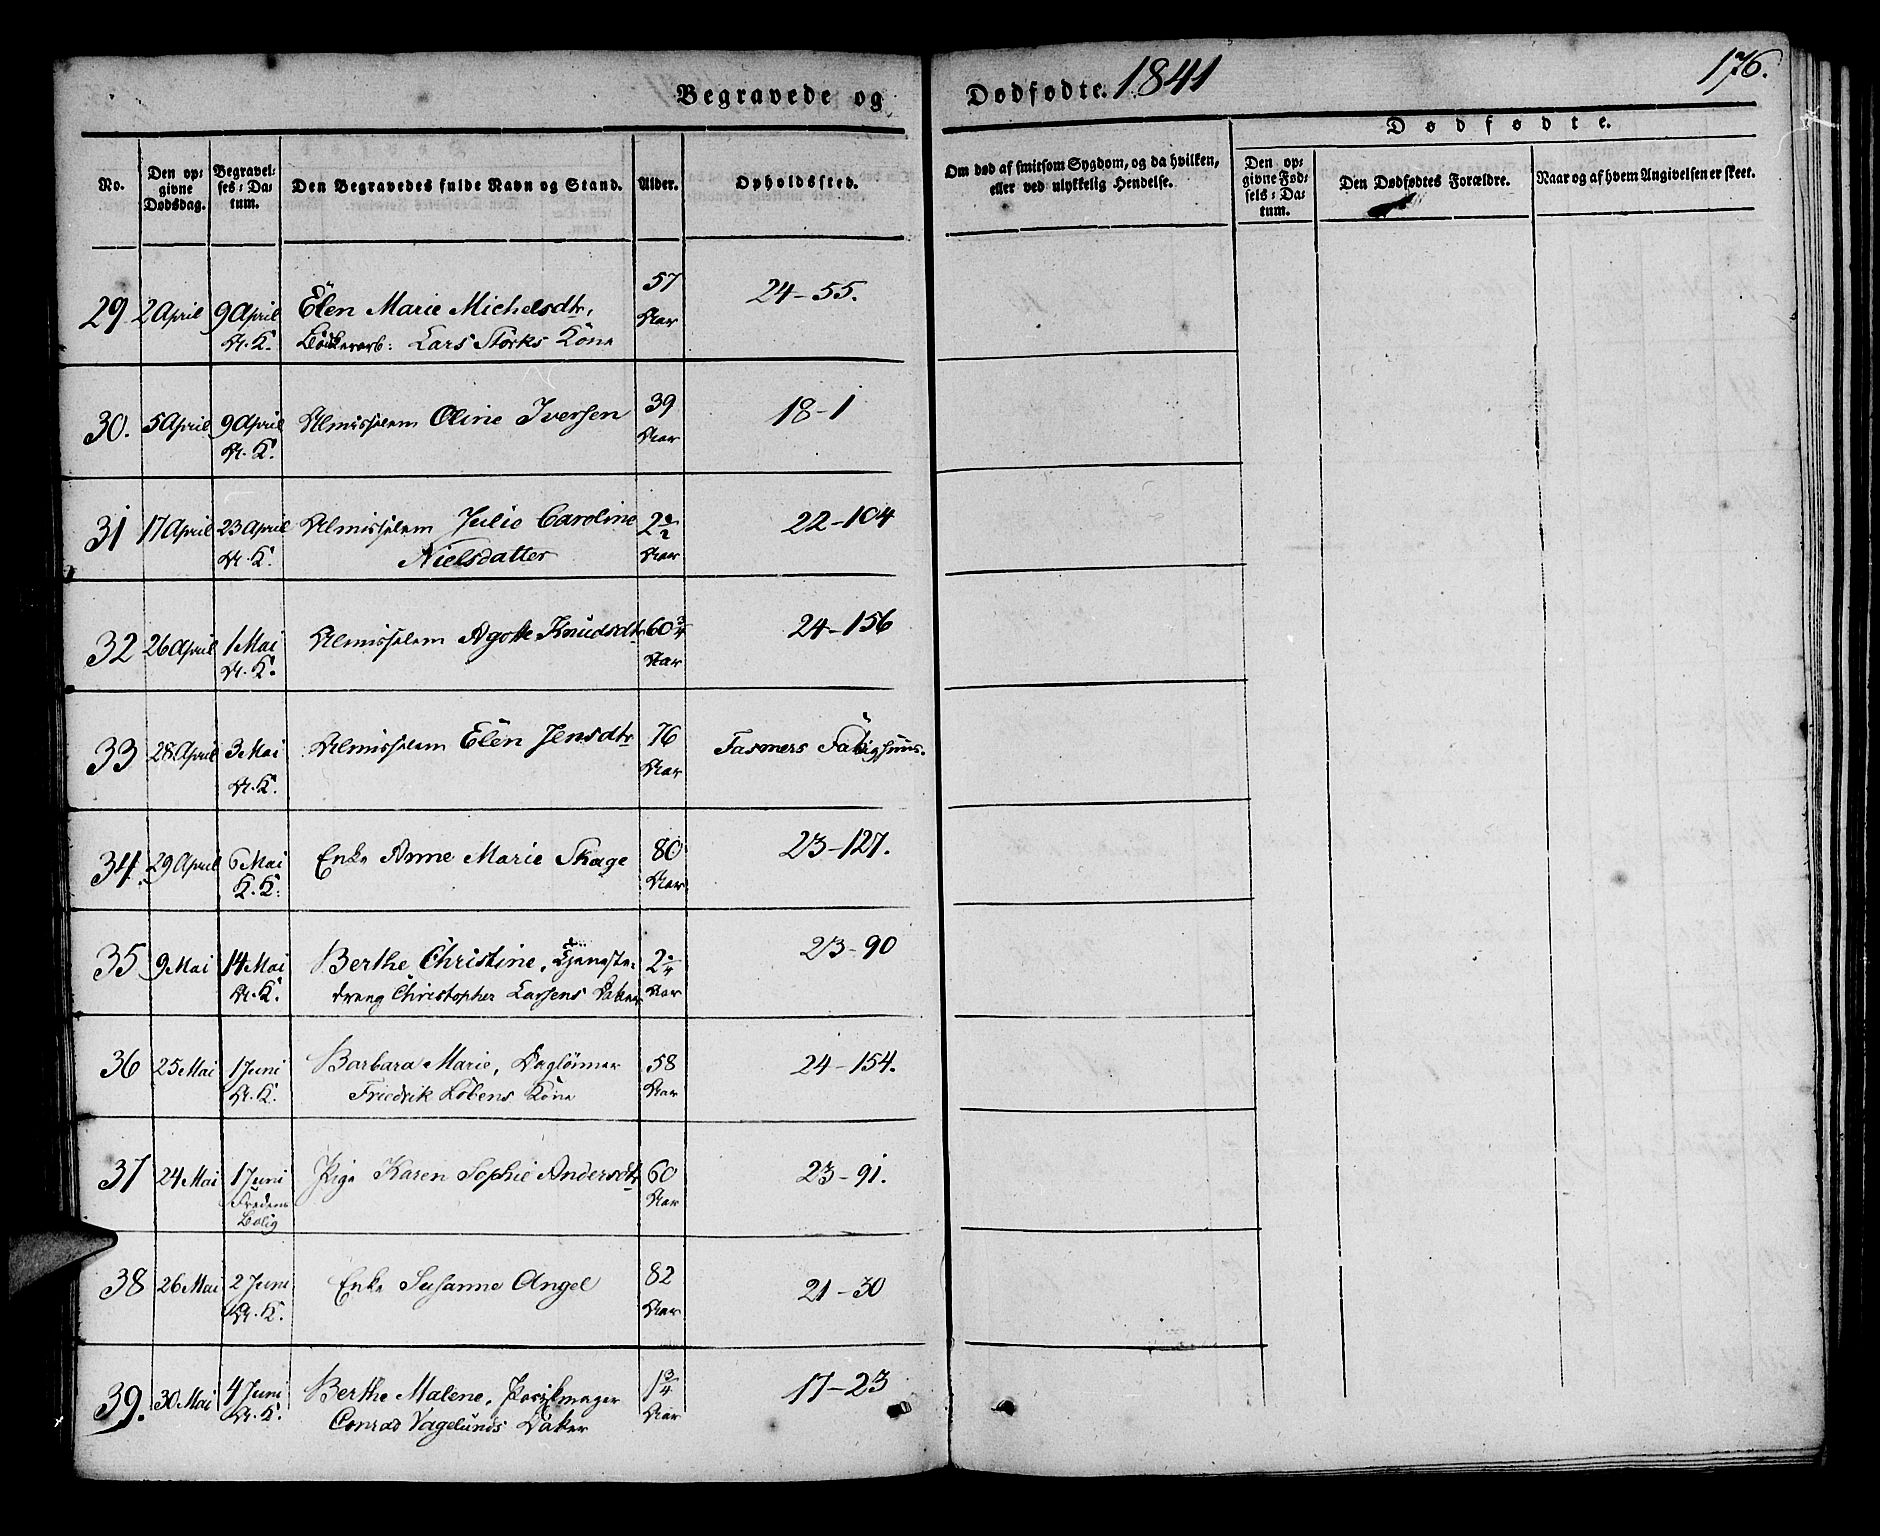 Begravede og Dødfødte. 1841
176.
No.
Den op-
givne
Dødsdag.
Begravel-
ses-Da-
tum.
Den Begravedes fulde Navn og Stand.
Alder.
Opholdssted.
Om død af smitsom Sygdom, og da hvilken,
eller ved ulykkelig Hendelse.
Dødfødte.
Den op-
givne Fød-
sels-Da-
tum.
Den Dødfødtes Forældre.
Naar og af hvem Angivelsen er skeet.
29 2 April 9 April Elen Marie Michelsdtr, 57 24-55.
A. K. Lars Storks Kone Aar
30. 5 April 9 April Almisselem Oline Iversen 39 18-1
A. K. Aar
31 17 April 23 April Almisselem Julie Caroline 2 22-104
A. K. Nielsdatter Aar
32 26 April 1 Mai Almisselem Agotte Knudsdtr 60 3/4 24-156
A. K. Aar
33 28 April 3 Mai Almisselem Elen Jensdtr 76
A. K. Aar
34. 29 April 6 Mai Enke Anne Marie Skage 80 23-127.
K. K. Aar
35 9 Mai 14 Mai Berthe Christine, Tjeneste- 2 23-90
A. K. dreng Christopher Larsens Datter Aar
36 25 Mai 1 Juni Barbara Marie, Daglönner 58 24-154.
A. K. Friedrik Lobens Kone Aar
37 24 Mai 1 Juni Pige Karen Sophie Andersdtr 60 23-91.
Fredens Aar
Bolig
38 26 Mai 2 Juni Enke Susanne Angel 82 21-30
A. K. Aar
39. 30 Mai 4 Juni Berthe Malene, 1 3/4 17-23
A. K. Conrad Vagelunds Datter Aar